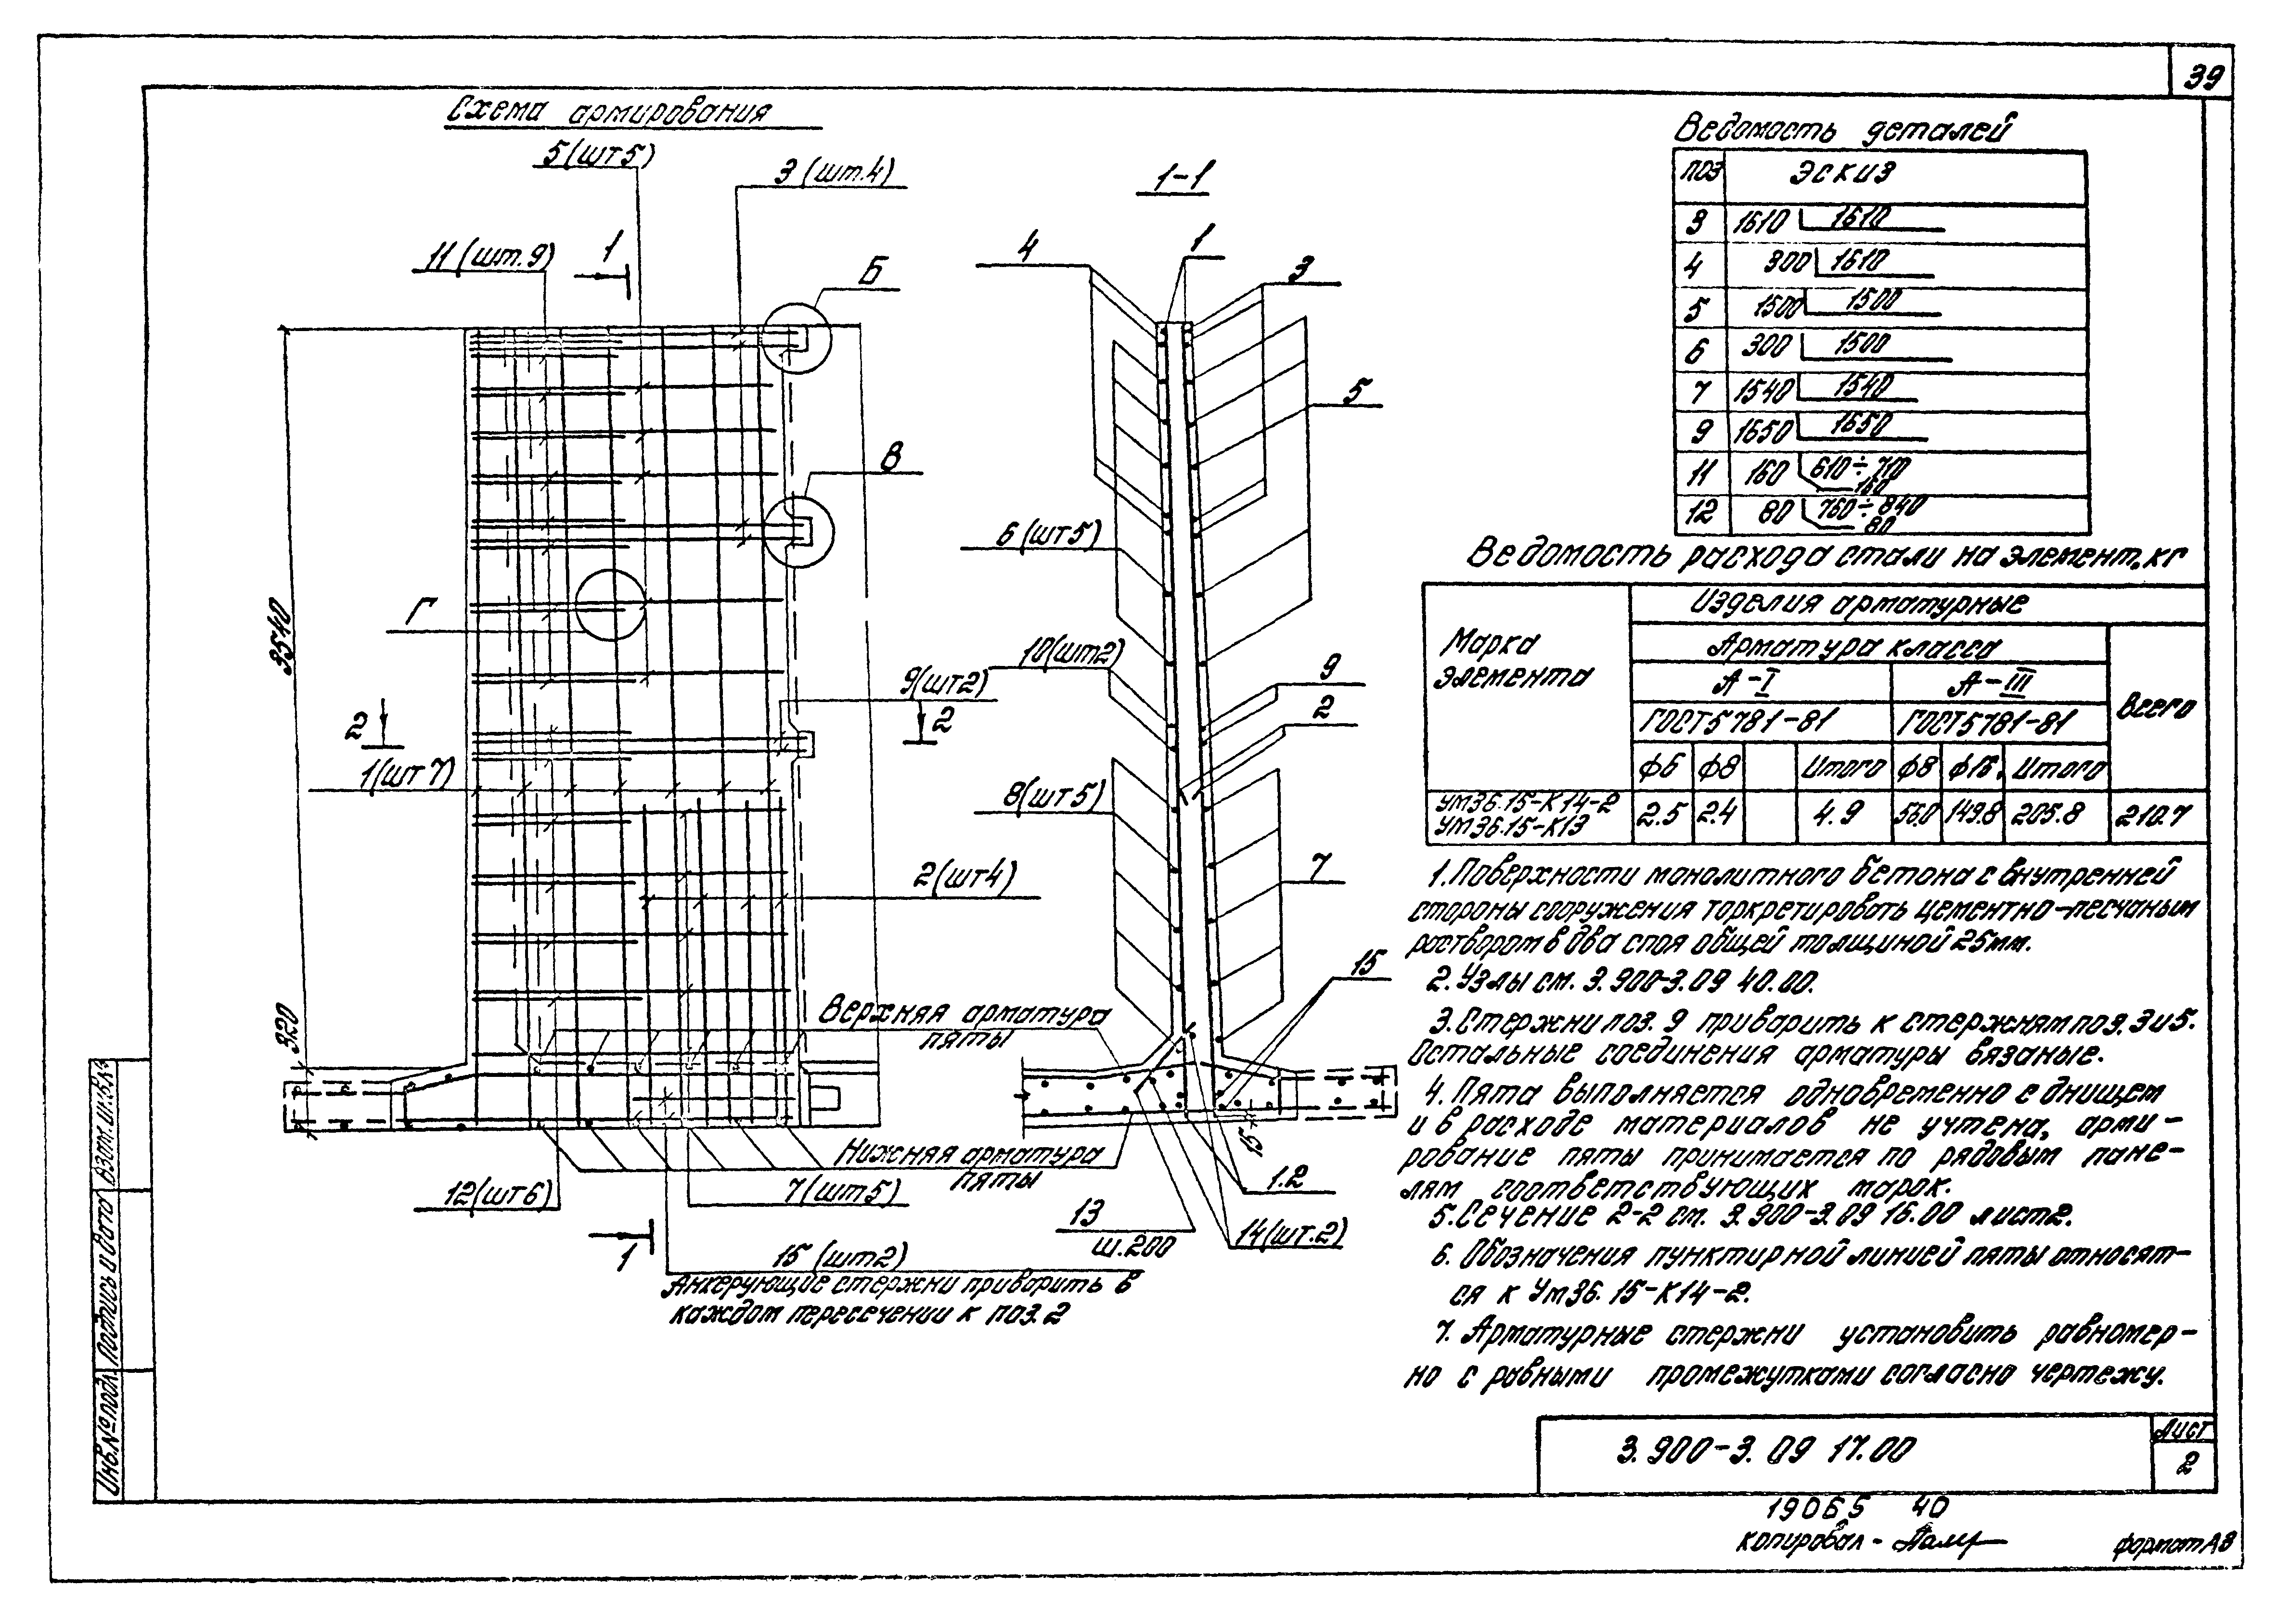 39
Схема армирования
5(шт5)
3 (шт.4)
11 (шт.9)
1
Б
В
Г
3540
320
9(шт2)
2
2
1(шт7)
2(шт4)
Верхняя арматура
пяты
Нижняя арматура
пяты
12(шт6)
7(шт5)
1
15 (шт2)
Анкерующие стержни приварить в
каждом пересечении к поз.2
1-1
4
1
3
5
6(шт5)
10(шт2)
9
2
8(шт5)
7
15
15
1.2
13
ш.200
14(шт.2)
Ведомость деталей
поз Эскиз
3 1610 1610
4 300 1610
5 1500 1500
6 300 1500
7 1540 1540
9 1650 1650
11 160 610÷710 160
12 80 760÷840 80
Ведомость расхода стали на элемент, кг
Марка
элемента
Изделия арматурные
Арматура класса
Всего
А-I А-III
ГОСТ5781-81 ГОСТ5781-81
ф6 ф8 Итого ф8 ф16 Итого
Ум36.15-К14-2
Ум36.15-К13
2.5 2.4 4.9 56.0 149.8 205.8 210.7
1. Поверхности монолитного бетона с внутренней
стороны сооружения торкретировать цементно-песчаным
раствором в два слоя общей толщиной 25мм.
2. Узлы см. 3.900-3.09 40.00.
3. Стержни поз. 9 приварить к стержням поз. 3 и 5.
Остальные соединения арматуры вязаные.
4. Пята выполняется одновременно с днищем
и в расходе материалов не учтена, арми-
рование пяты принимается по рядовым пане-
лям соответствующих марок.
5. Сечение 2-2 см. 3.900-3.09 16.00 лист2.
6. Обозначения пунктирной линией пяты относят-
ся к Ум36.15-К14-2.
7. Арматурные стержни установить равномер-
но с равными промежутками согласно чертежу.
3.900-3.09 17.00
Лист
2
19065 40
Копировал-
формат А3
Инв.№подл. Подпись и дата Взам.инв.№